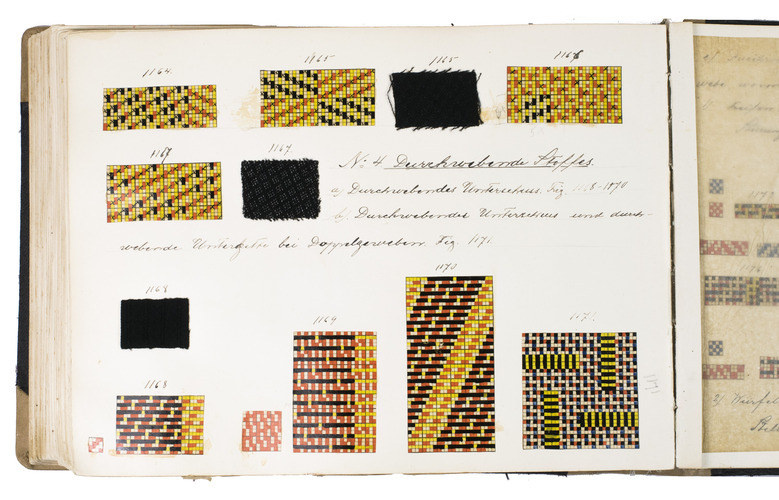 1164.
1165
1165
1166
1167
1167.
No 4 Durchwebende Stoffe.
a) Durchwebendes Unterschuss. Fig. 1168-1870
b) Durchwebendes Unterschuss und durch-
webende Unterkette bei Doppelgeweben. Fig. 1171.
1168
1169
1170
1171.
1168
1171